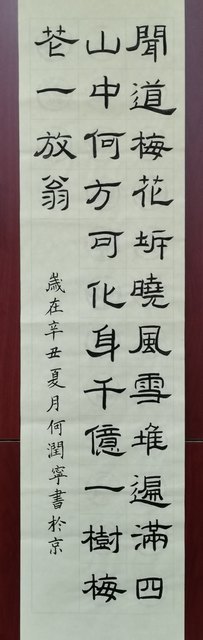 聞道梅花坼曉風雪堆遍滿四
山中何方可化身千億一樹梅
花一放翁
歲在辛丑夏月何潤寧書於京